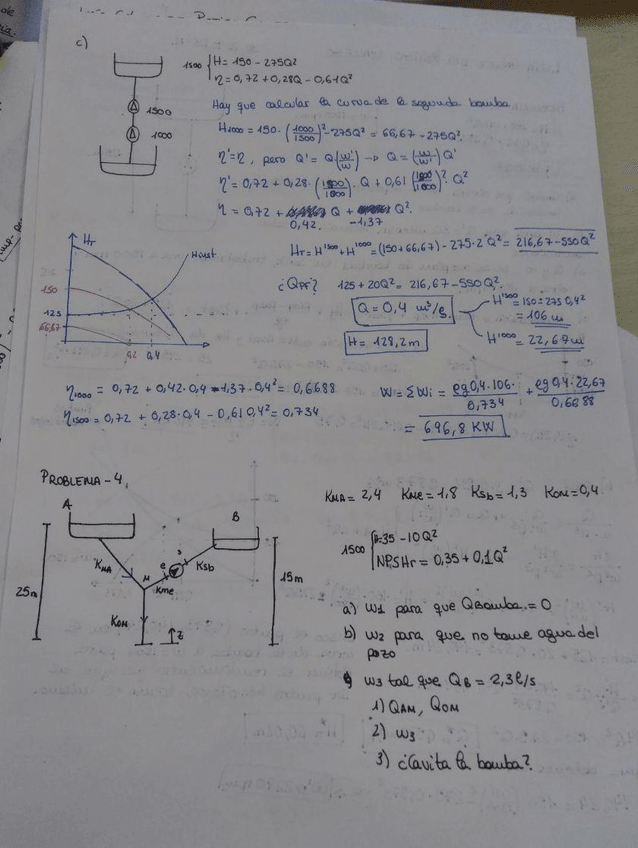 c)
1500 { H = 150 - 275Q²
η = 0,72 + 0,28Q - 0,61Q²
1500
1000
Hay que calcular la curva de la segunda bomba
H1000 = 150 · (1000/1500)² - 275Q² = 66,67 - 275Q².
η' = η, pero Q' = Q(w'/w) → Q = (w/w')Q'
η' = 0,72 + 0,28 · (1500/1000) · Q + 0,61 (1500/1000)² · Q²
η = 0,72 + Q + Q².
0,42. -1,37
HT
Hinst
150
125
66,67
0,2
0,4
HT = H¹⁵⁰⁰ + H¹⁰⁰⁰ = (150 + 66,67) - 275·2 Q² = 216,67 - 550Q²
¿QPF? 125 + 20Q² = 216,67 - 550Q².
Q = 0,4 m³/s.
H = 128,2m
H¹⁵⁰⁰ = 150 = 275 0,4²
= 106 m
H¹⁰⁰⁰ = 22,67 m
η1000 = 0,72 + 0,42 · 0,4 - 1,37 · 0,4² = 0,6688
η1500 = 0,72 + 0,28·0,4 - 0,61 0,4² = 0,734
W = ΣWi = eg0,4·106·/0,734 + eg0,4·22,67/0,6688
= 696,8 KW
PROBLEMA - 4.
A
B
KMA
e
s
Ksb
M
Kme
KOM
25m
15m
z
KMA = 2,4 KMe = 1,8 Ksb = 1,3 KOM = 0,4
1500 { H=35 - 10Q²
NPSHr = 0,35 + 0,1Q²
a) w1 para que QBomba = 0
b) w2 para que no tome agua del
pozo
w3 tal que QB = 2,3 l/s
1) QAM, QOM
2) w3
3) ¿Cavita la bomba?